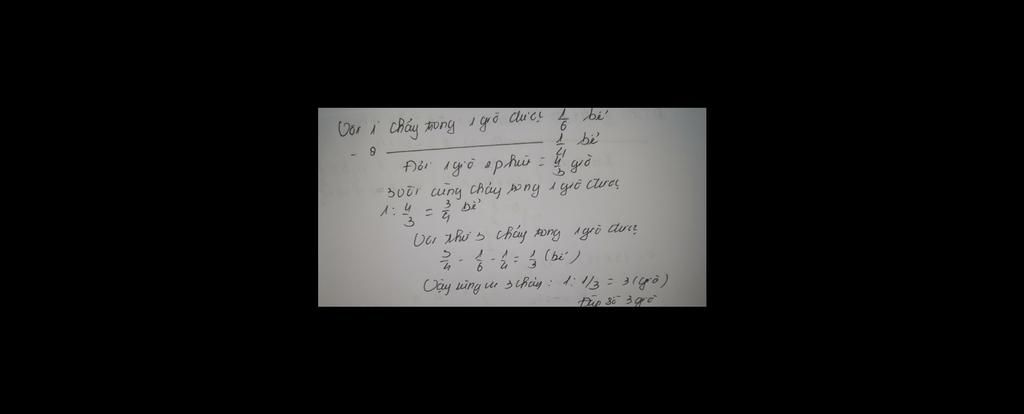 Vòi 1 chảy trong 1 giờ được 1/6 bể
- 2 ———— 1/4 bể
Đổi 1 giờ 2 phút = 4/3 giờ
3 vòi cùng chảy trong 1 giờ được
1 : 4/3 = 3/4 bể
Vòi thứ 3 chảy trong 1 giờ được
3/4 - 1/6 - 1/4 = 1/3 (bể)
Vậy vòi 3 chảy : 1 : 1/3 = 3 (giờ)
Đáp số 3 giờ